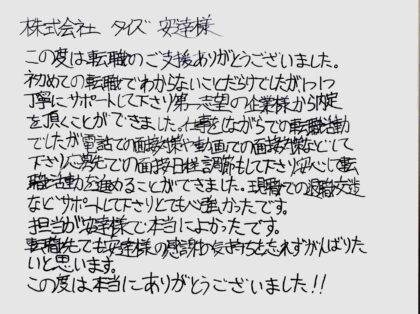 株式会社 タイズ 安達様
この度は転職のご支援ありがとうございました。
初めての転職でわからないことだらけでしたが1つ1つ
丁寧にサポートして下さり第一志望の企業様から内定
を頂くことができました。仕事をしながらでの転職活動
でしたが電話での面接対策や動画での面接対策などをして
下さり応募先での面接日程調節もして下さり安心して転
職活動を進めることができました。現職での退職交渉
などサポートして下さりとても心強かったです。
担当が安達様で本当によかったです。
転職先でも安達様の感謝の気持ちを忘れずがんばりた
いと思います。
この度は本当にありがとうございました!!